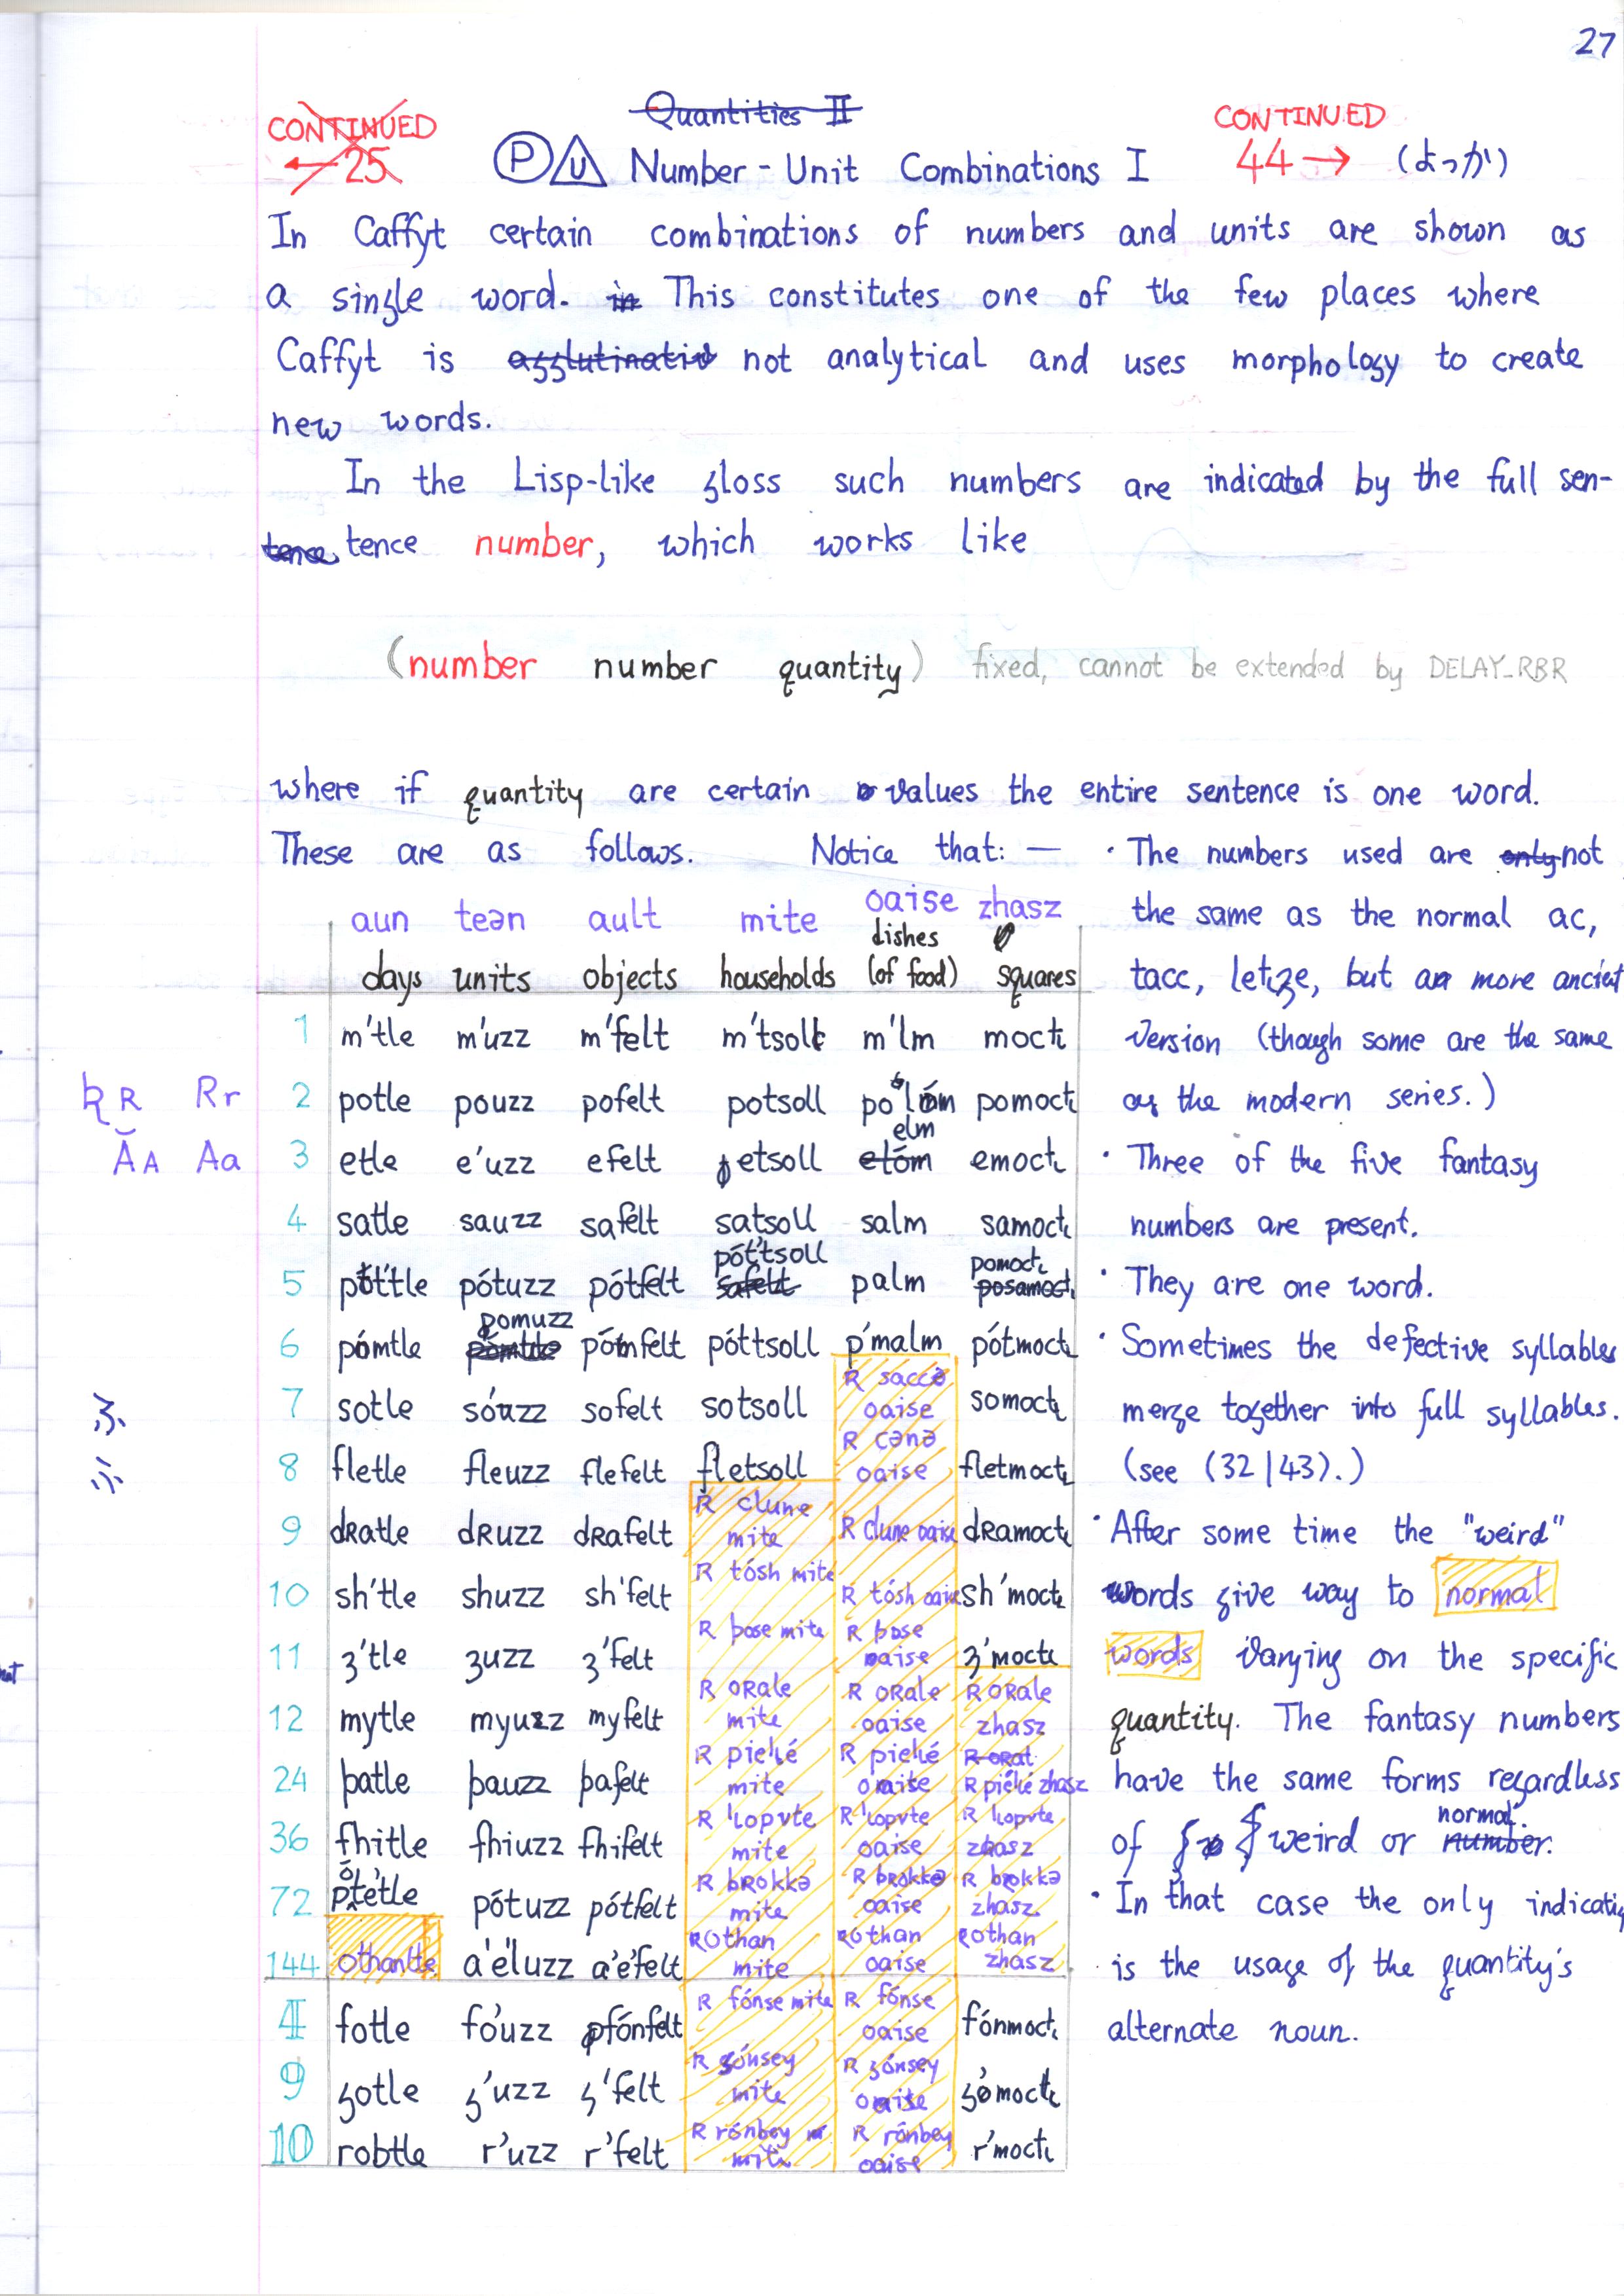 27
CONTINUED
← 25
Quantities II
CONTINUED
44 → (よっか)
P U Number-Unit Combinations I
In Caffyt certain combinations of numbers and units are shown as
a single word. in This constitutes one of the few places where
Caffyt is agglutinativ not analytical and uses morphology to create
new words.
In the Lisp-like gloss such numbers are indicated by the full sen-
tence tence number, which works like
(number number quantity) fixed, cannot be extended by DELAY_RBR
where if quantity are certain values the entire sentence is one word.
These are as follows. Notice that: —
aun teən ault mite oaise zhasz
days units objects households dishes (of food) squares
1 m'tle m'uzz m'felt m'tsoll m'lm mocti
2 potle pouzz pofelt potsoll po'lm pomocti
3 etle e'uzz efelt etsoll etóm elm emocti
4 satle sauzz safelt satsoll salm samocti
5 pót'tle pótuzz pótfelt safelt pót'tsoll palm posamocti pomocti
6 pómtle pómtle pomuzz pómfelt póttsoll p'malm pótmocti
7 sotle sóuzz sofelt sotsoll R saccə oaise somocti
8 fletle fleuzz flefelt fletsoll R cənə oaise fletmocti
9 dRatle dRuzz dRafelt R clune mite R clune oaise dRamocti
10 sh'tle shuzz sh'felt R tósh mite R tósh oaise sh'mocti
11 ʒ'tle ʒuzz ʒ'felt R þose mite R þose oaise ʒ'mocti
12 mytle myuzz myfelt R oRale mite R oRale oaise R oRale zhasz
24 þatle þauzz þafelt R piełé mite R piełé oaise R orat R piełé zhasz
36 fhitle fhiuzz fhifelt R łopvte mite R łopvte oaise R łopvte zhasz
72 póte'tle pótuzz pótfelt R bRokkə mite R bRokkə oaise R bRokkə zhasz
144 othantle a'é'luzz a'é'felt Rothan mite Rothan oaise Rothan zhasz
4 fotle fo'uzz fónfelt R fónse mite R fónse oaise fónmocti
9 ʒotle ʒ'uzz ʒ'felt R ʒónsey mite R ʒónsey oaise ʒómocti
10 robtle r'uzz r'felt R rónbey mite R rónbey oaise r'mocti
R Rr
Ă A Aa
· The numbers used are only not
the same as the normal ac,
tacc, letʒe, but an more ancient
version (though some are the same
as the modern series.)
· Three of the five fantasy
numbers are present.
· They are one word.
· Sometimes the defective syllables
merge together into full syllables.
(see (32|43).)
· After some time the "weird"
words give way to normal
words varying on the specific
quantity. The fantasy numbers
have the same forms regardless
of weird or number normal.
· In that case the only indicating
is the usage of the quantity's
alternate noun.